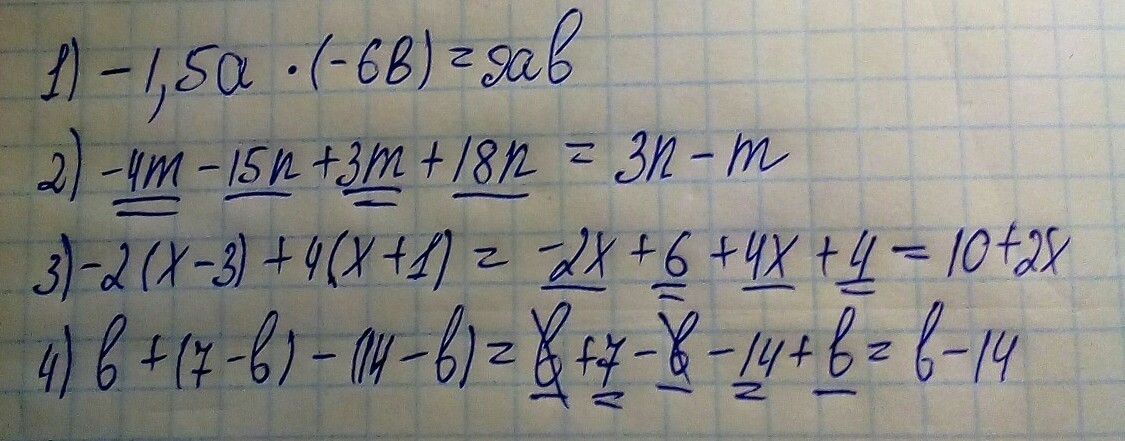 1) -1,5a · (-6b) = 9ab
2) -4m - 15n + 3m + 18n = 3n - m
3) -2(x-3) + 4(x+1) = -2x + 6 + 4x + 4 = 10+2x
4) b + (7-b) - (14-b) = b + 7 - b - 14 + b = b - 14